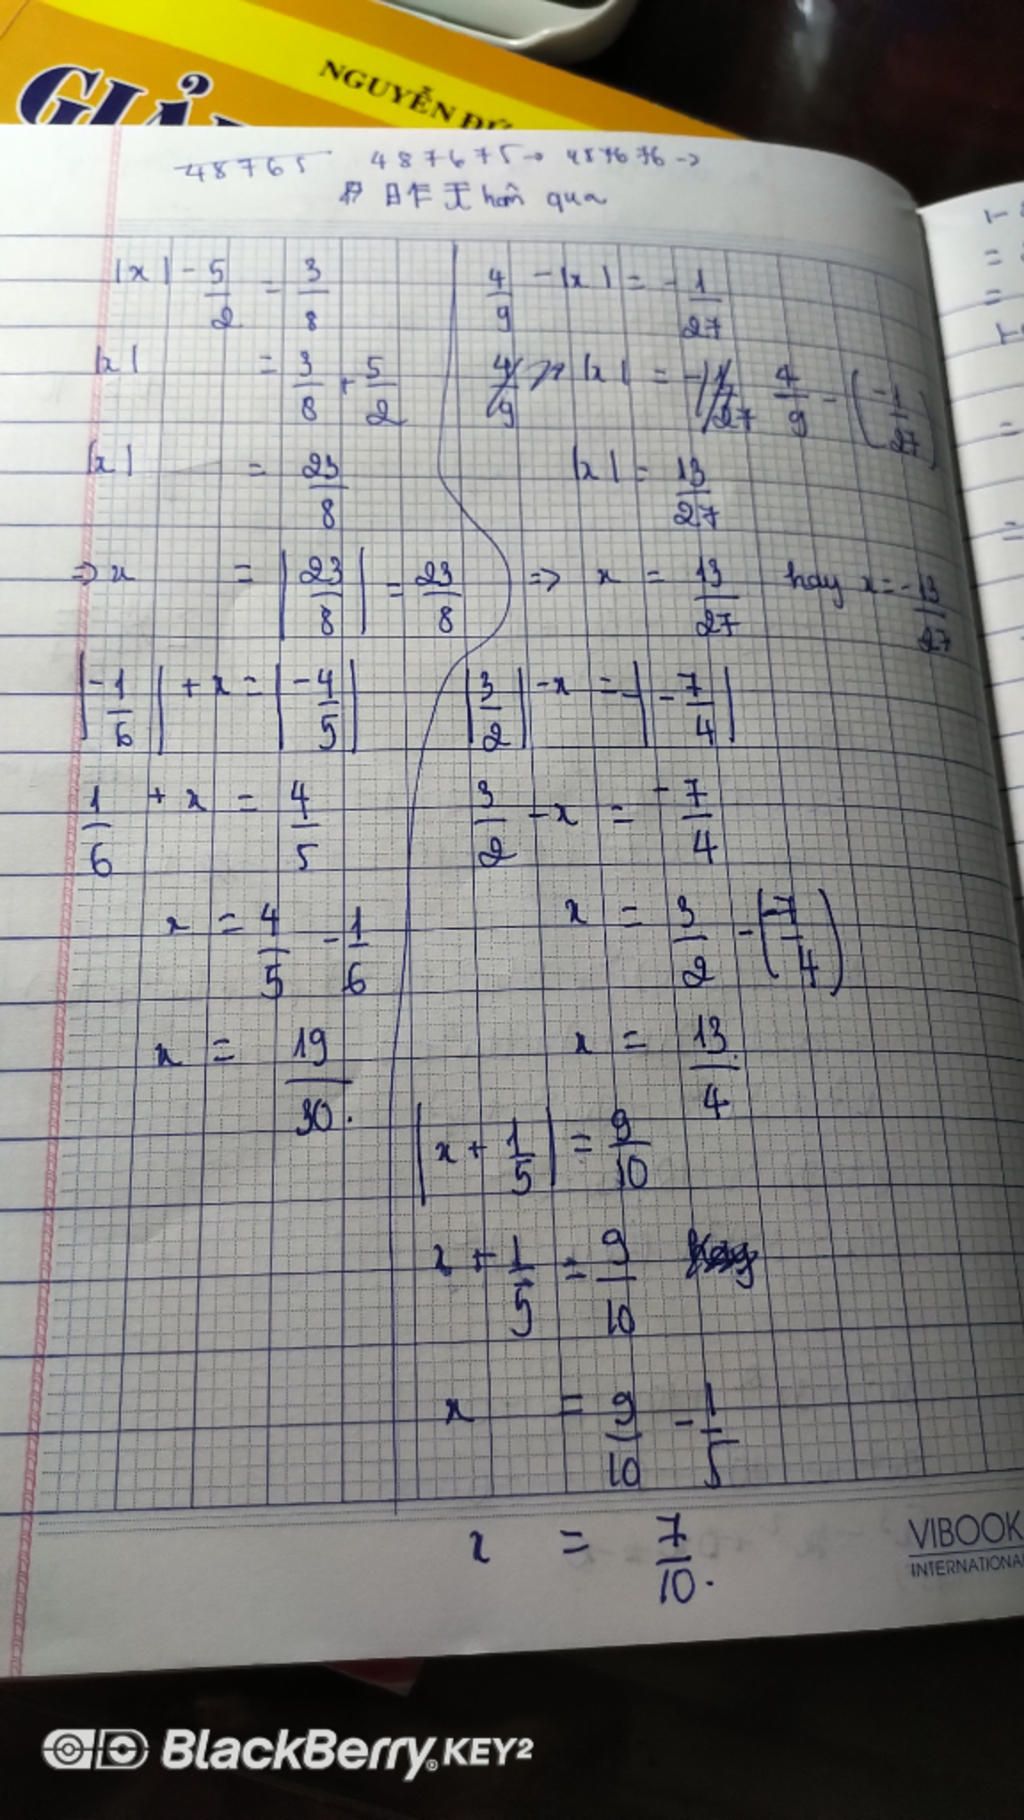 GIẢ
NGUYỄN ĐỨ
48765 487675→ 487676→
hôm qua
|x| - 5/2 = 3/8
|x| = 3/8 + 5/2
|x| = 23/8
=> x = |23/8| = 23/8
|-1/6| + x = |-4/5|
1/6 + x = 4/5
x = 4/5 - 1/6
x = 19/30.
4/9 - |x| = -1/27
|x| = 4/9 - (-1/27)
|x| = 13/27
=> x = 13/27 hay x = -13/27
|3/2| - x = -|-7/4|
3/2 - x = -7/4
x = 3/2 - (-7/4)
x = 13/4
|x + 1/5| = 9/10
x + 1/5 = 9/10
x = 9/10 - 1/5
x = 7/10.
VIBOOK
INTERNATIONA
BlackBerry KEY2